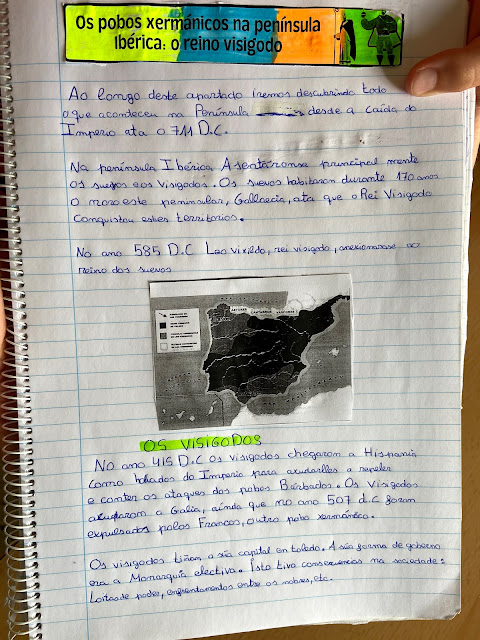 Os pobos xermánicos na península
Ibérica: o reino visigodo
Ao longo deste apartado iremos descubrindo todo
o que aconteceu na Península desde a caída do
Imperio ata o 711 D.C.
Na península Ibérica, Asentáronse principal mente
os suevos e os Visigodos. Os suevos habitaron durante 170 anos
o noroeste peninsular, Gallaecia, ata que o Rei Visigodo
conquistou estes territorios.
No ano 585 D.C Leo vixildo, rei visigodo, anexionarase no
reino dos suevos
ASTURES CANTABROS VASCONES
OS VISIGODOS
No ano 415 D.C os visigodos chegaron a Hispania
como aliados do Imperio para axudarlles a repeler
e conter os ataques dos pobos Bárbados. Os Visigodos
axudaron a Galia, aínda que no ano 507 d.C foron
expulsados polos Francos, outro pobo xermánico.
Os visigodos tiñan a súa capital en toledo. A súa forma de goberno
era a Monarquía electiva. Isto tivo consecuencias na sociedade:
Loitas de poder, enfrontamentos entre os nobres, etc.